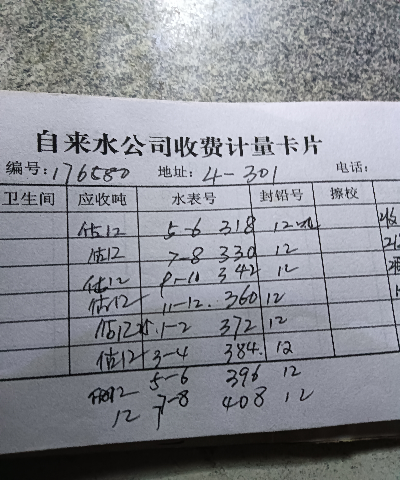 自来水公司收费计量卡片
编号:176580 地址:4-301 电话:
卫生间 应收吨 水表号 封铅号 擦校
估12 5-6 318 12
估12 7-8 330 12
估12 9-10 342 12
估12 11-12. 360 12
估12 1-2 372 12
估12 3-4 384. 12
12 5-6 396 12
12 7-8 408 12